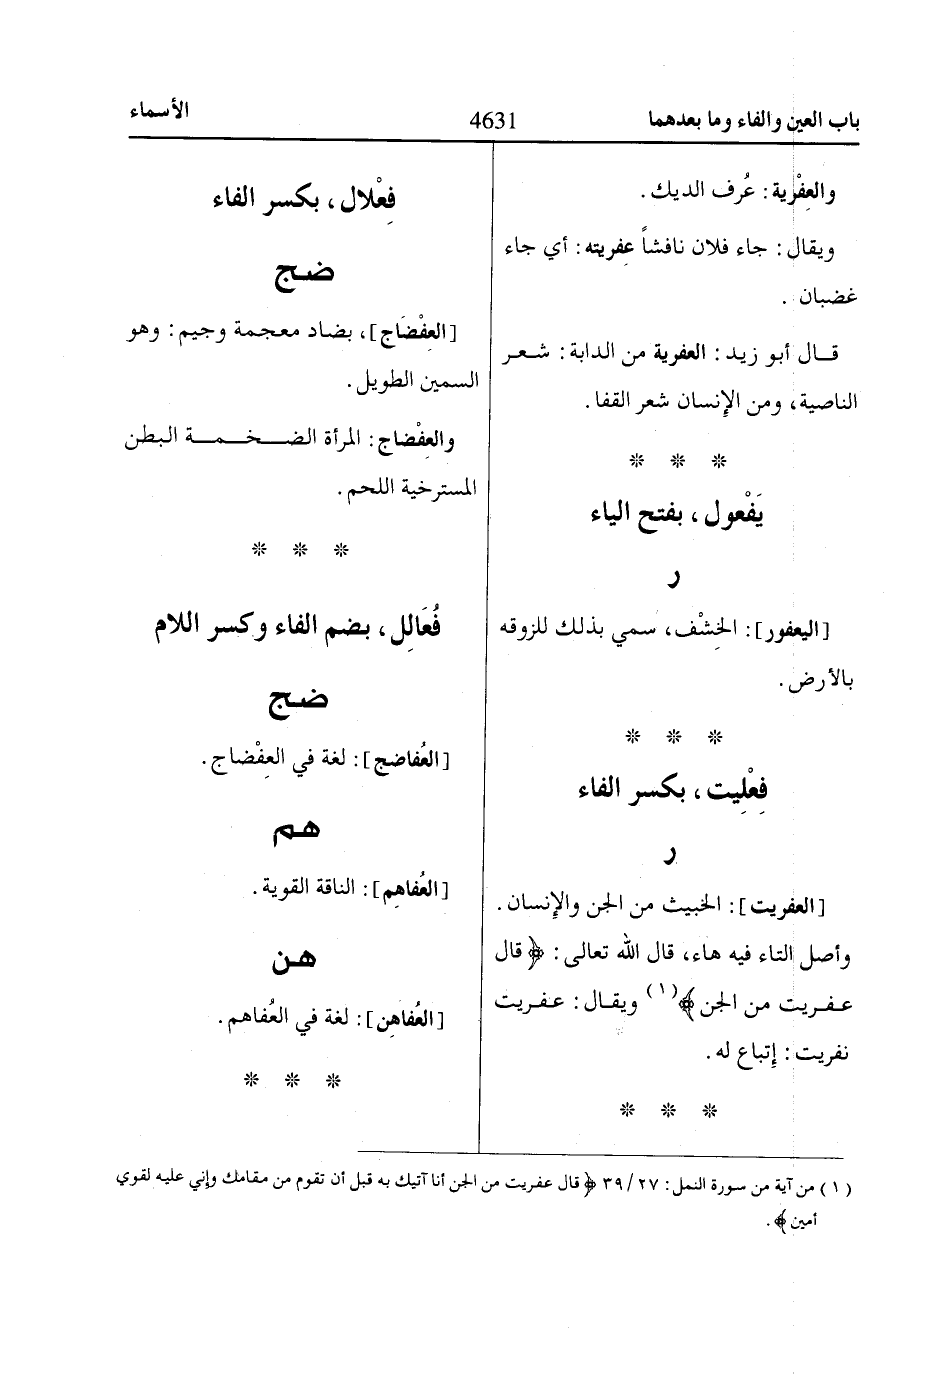 باب العين والفاء وما بعدهما
4631
الأسماء
والعِفْرِية: عُرف الديك.
ويقال: جاء فلان نافشاً عفريته: أي جاء
غضبان.
قال أبو زيد: العفرية من الدابة: شعر
الناصية، ومن الإنسان شعر القفا.
* * *
يَفْعول، بفتح الياء
ر
[اليعفور]: الخِشْف، سمي بذلك للزوقه
بالأرض.
* * *
فِعْلِيت، بكسر الفاء
ر
[العفريت]: الخبيث من الجن والإنسان.
وأصل التاء فيه هاء، قال الله تعالى: ﴿قال
عفريت من الجن﴾(١) ويقال: عفريت
نفريت: إتباع له.
* * *
فِعْلال، بكسر الفاء
ضج
[العِفْضَاج]، بضاد معجمة وجيم: وهو
السمين الطويل.
والعِفْضاج: المرأة الضخمة البطن
المسترخية اللحم.
* * *
فُعَالِل، بضم الفاء وكسر اللام
ضج
[العُفاضج]: لغة في العِفْضاج.
هم
[العُفاهِم]: الناقة القوية.
هن
[العُفاهِن]: لغة في العُفاهم.
* * *
(١) من آية من سورة النمل: ٢٧/٣٩ ﴿قال عفريت من الجن أنا آتيك به قبل أن تقوم من مقامك وإني عليه لقوي
أمين﴾.